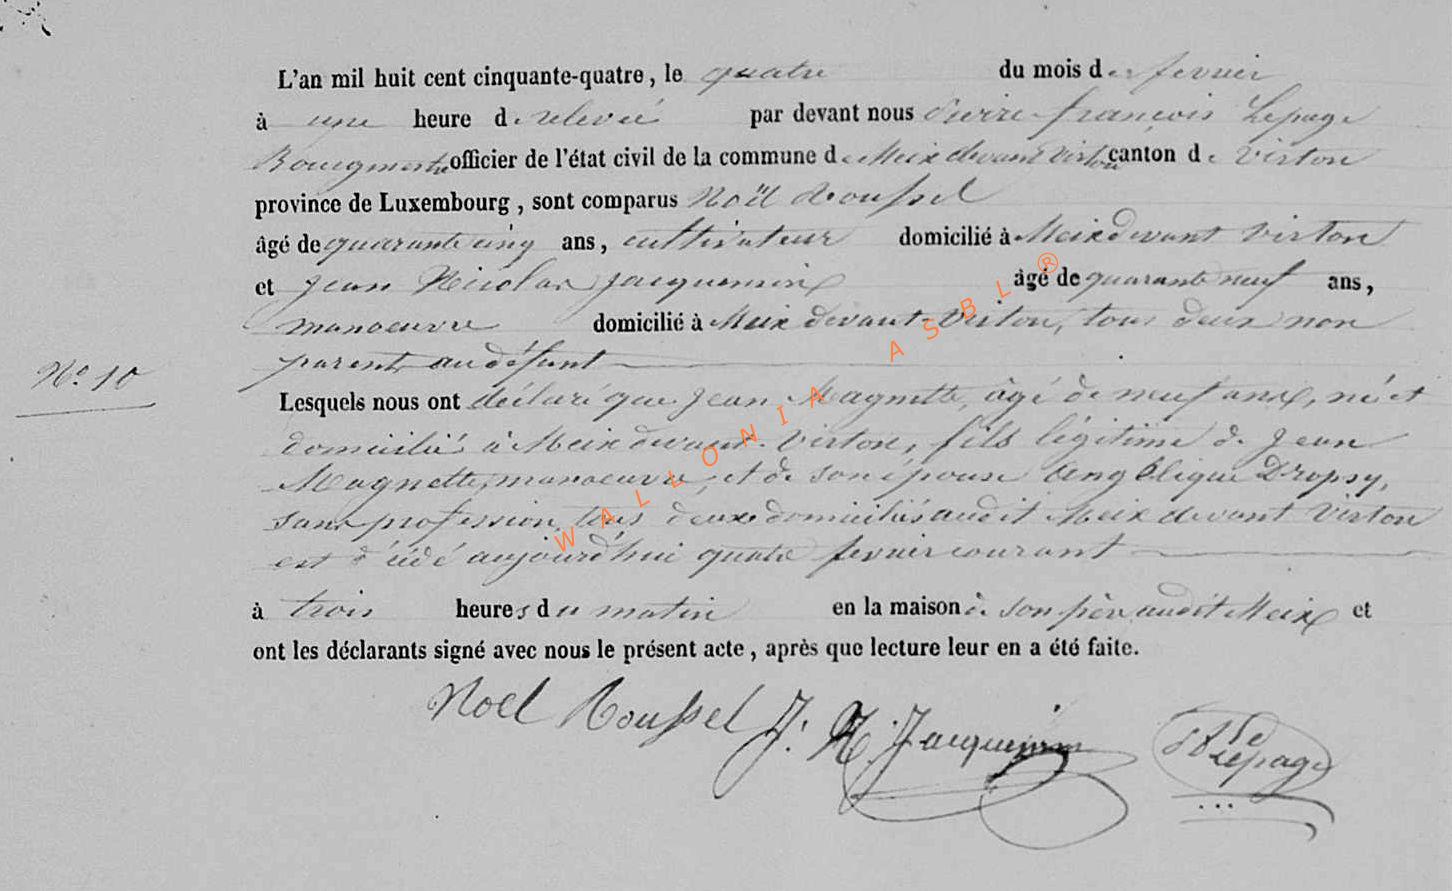 L'an mil huit cent cinquante-quatre, le quatre du mois de fevrier
à une heure de relevée par devant nous Pierre françois Lepage
Bourgmestre officier de l'état civil de la commune de Meix devant Virton canton de Virton
province de Luxembourg, sont comparus Noël Roussel
âgé de quarante cinq ans, cultivateur domicilié à Meix devant Virton
et Jean Nicolas Jacquemin âgé de quarante neuf ans,
manoeuvre domicilié à Meix devant Virton, tous deux non
parents au défunt
N° 10
Lesquels nous ont déclaré que Jean Magnette, âgé de neuf ans, né et
domicilié à Meix devant Virton, fils légitime de Jean
Magnette, manoeuvre, et de son épouse Angélique Dropsy,
sans profession, tous deux domiciliés audit Meix devant Virton
est décédé aujourd'hui quatre fevrier courant
à trois heures du matin en la maison de son père audit Meix et
ont les déclarants signé avec nous le présent acte, après que lecture leur en a été faite.
Noel Roussel J. N. Jacquemin Lepage
WALLONIA ASBL ®